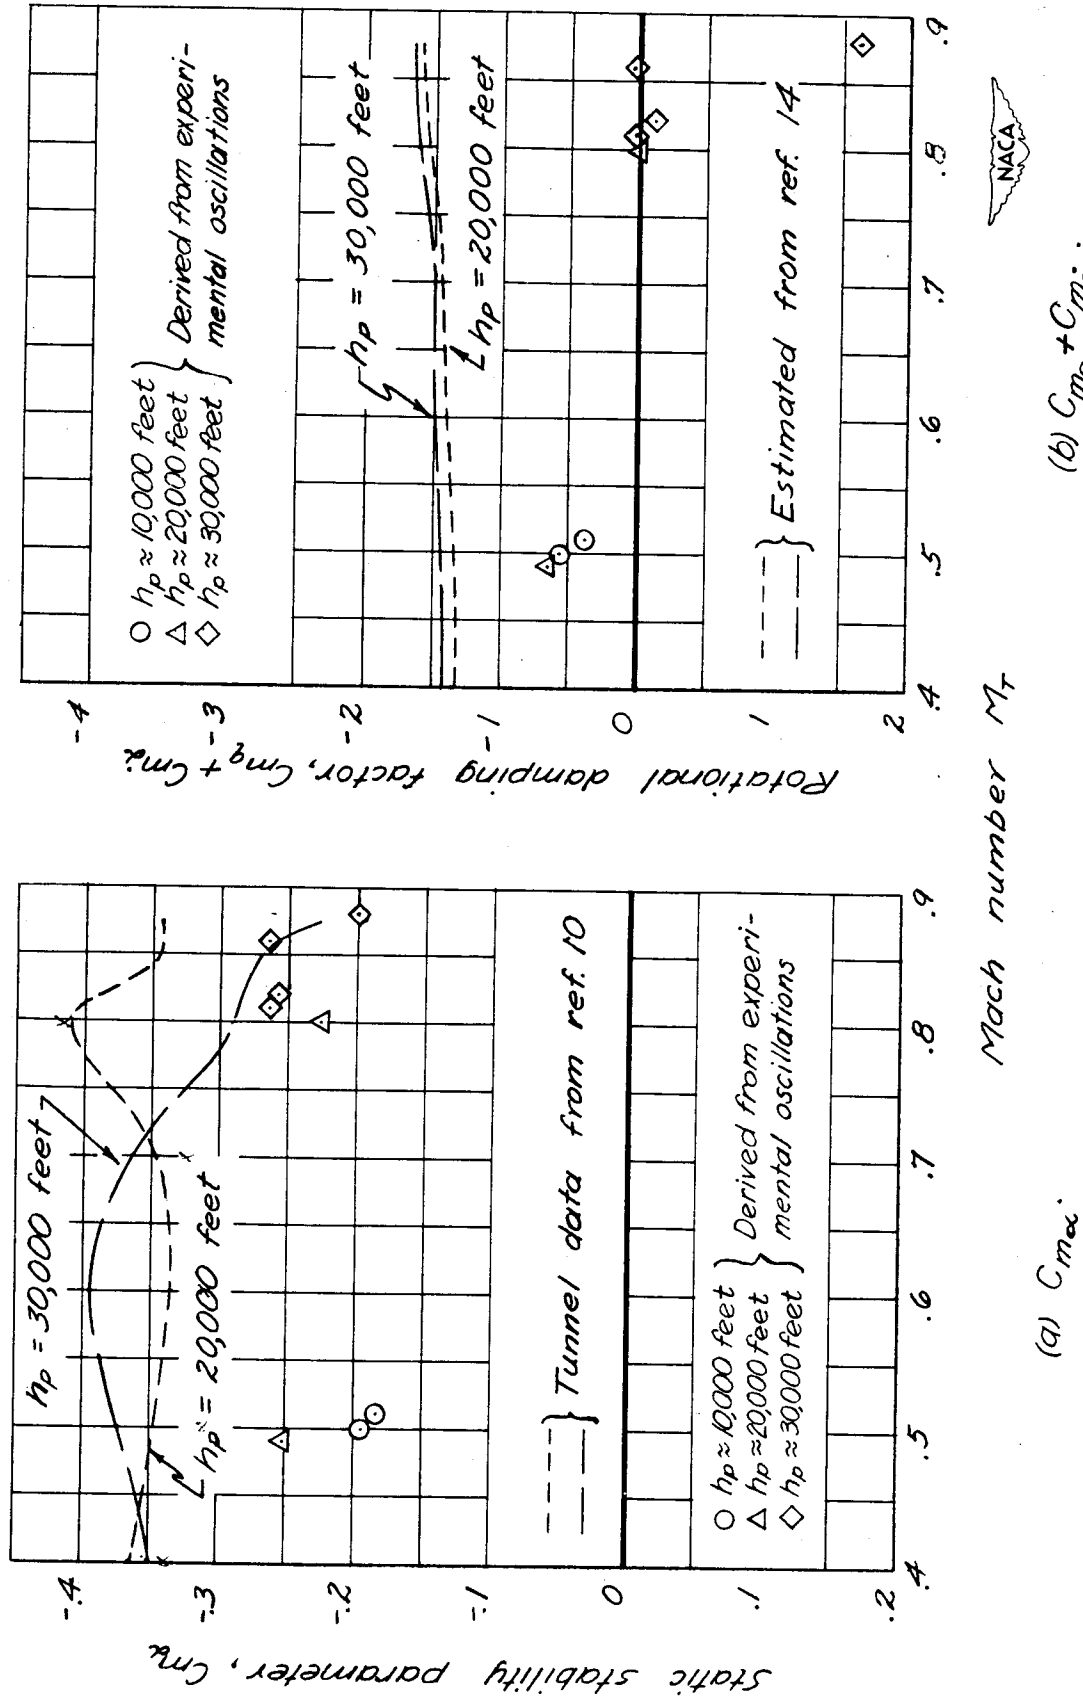 Static stability parameter, Cmα
-.4
-.3
-.2
-.1
0
.1
.2
hp = 30,000 feet
hp = 20,000 feet
Tunnel data from ref. 10
○ hp ≈ 10,000 feet
△ hp ≈ 20,000 feet
◇ hp ≈ 30,000 feet
Derived from experi-
mental oscillations
.4 .5 .6 .7 .8 .9
(a) Cmα.
Rotational damping factor, Cmq + Cmα̇
-4
-3
-2
-1
0
1
2
○ hp ≈ 10,000 feet
△ hp ≈ 20,000 feet
◇ hp ≈ 30,000 feet
Derived from experi-
mental oscillations
hp = 30,000 feet
hp = 20,000 feet
Estimated from ref. 14
.4 .5 .6 .7 .8 .9
Mach number MT
NACA
(b)